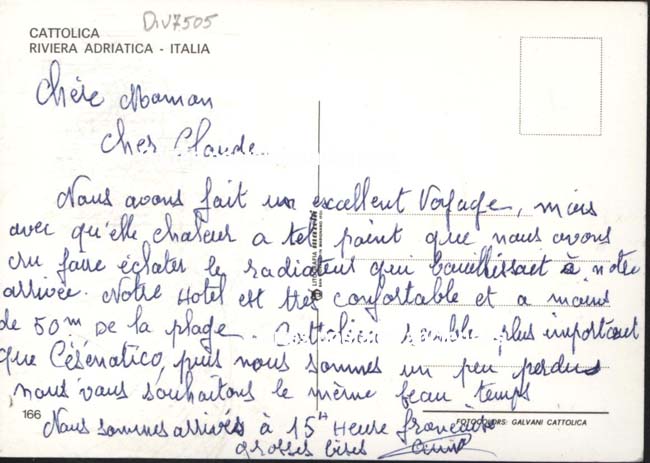 DIV7505
CATTOLICA
RIVIERA ADRIATICA - ITALIA
Chère Maman
Cher Claude
Nous avons fait un excellent Voyage, mais
avec qu'elle chaleur a tel point que nous avons
cru faire éclater le radiateur qui bouillissait à notre
arrivée. Notre Hotel est très confortable et a moins
de 50m de la plage. Cattolica semble plus important
que Césénatico, puis nous sommes un peu perdus
nous vous souhaitons le même beau temps
166
FOTOCOLORS: GALVANI CATTOLICA
Nous sommes arrivés à 15H Heure française
grosses bises